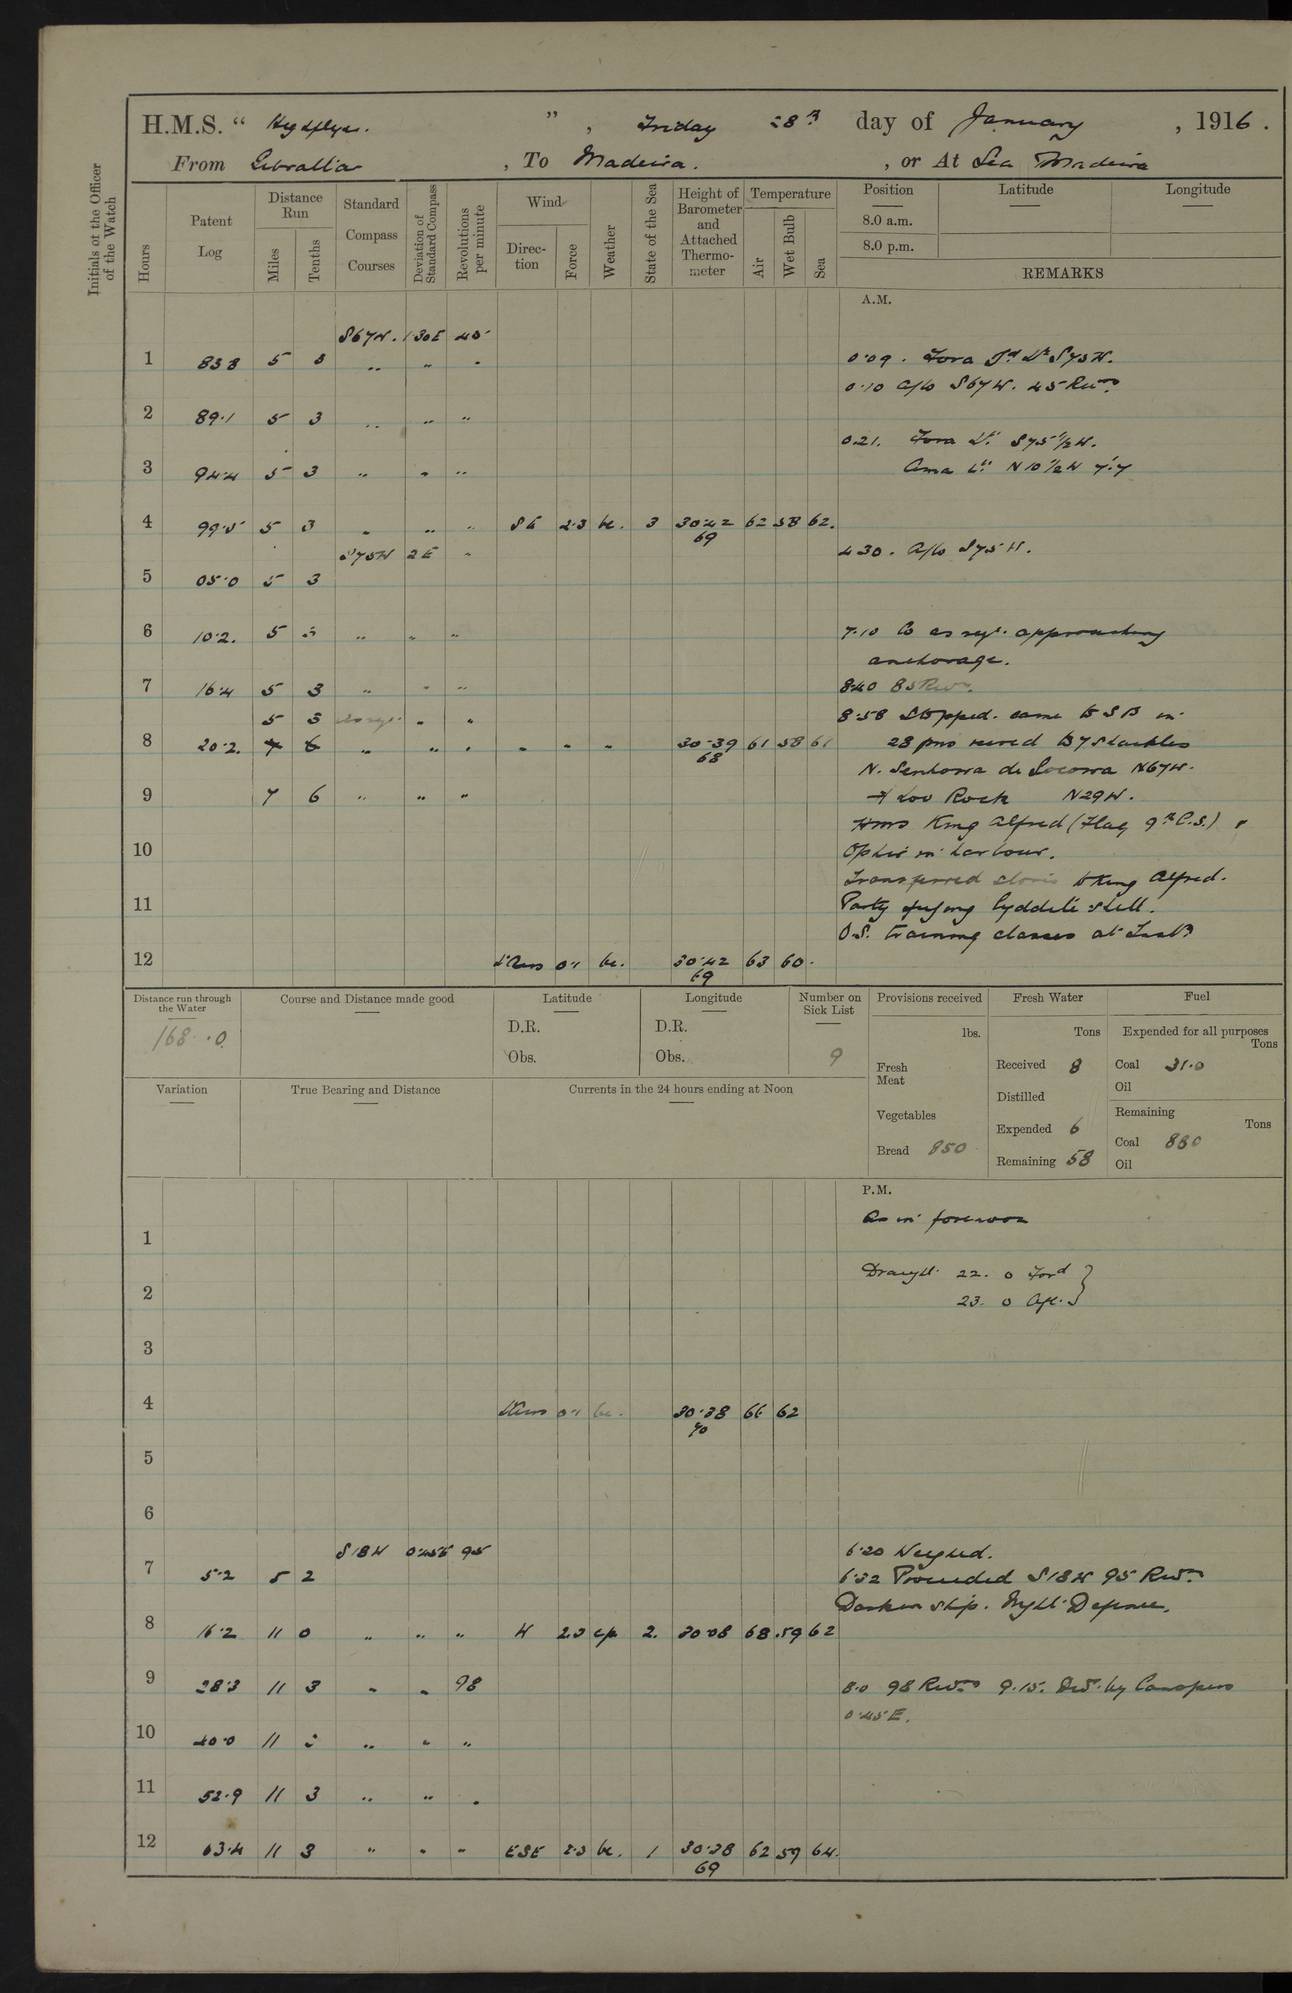 H.M.S. " Highflyer. " , Friday 28th day of January , 1916 .
From Gibraltar , To Madeira. , or At Sea & Madeira
Initials of the Officer of the Watch
Hours
Patent Log
Distance Run
Miles
Tenths
Standard Compass Courses
Deviation of Standard Compass
Revolutions per minute
Wind
Direction
Force
Weather
State of the Sea
Height of Barometer and Attached Thermometer
Temperature
Air
Wet Bulb
Sea
Position Latitude Longitude
8.0 a.m.
8.0 p.m.
REMARKS
A.M.
S67W. 1.30E 45
1 83.8 5 3 " " "
2 89.1 5 3 " " "
3 94.4 5 3 " " "
4 99.5 5 3 " " " SE 2.3 bc. 3 30.42 62 58 62.
69
S75W 2E "
5 05.0 5 3
6 10.2. 5 3 " " "
7 16.4 5 3 " " "
5 3 as reqd. " "
8 20.2. 7 6 " " " " " " 30.39 61 58 61
68
9 7 6 " " "
10
11
12 Airs 0.1 bc. 30.42 63 60.
69
0.09. Fora Id Lt S73W.
0.10 A/c S67W. 45 Revns.
0.21. Fora Lt. S75 1/2 W.
Lt. N10 1/2 W 7'.7
4.30. A/c S75W.
7.10 Co as reqd. approaching
anchorage.
8.40 85 Revns.
8.58 Stopped. came to S B in
28 fms veered to 7 shackles
N. Senhora de Socorra N67W.
& Loo Rock N29W.
HMS King Alfred (Flag 9th C.S.) &
Ophir in harbour.
Transferred stores to King Alfred.
Party lyddite shell.
O.S. training classes at Instn
Distance run through the Water
168.0
Course and Distance made good
Latitude
D.R.
Obs.
Longitude
D.R.
Obs.
Number on Sick List
9
Provisions received
lbs.
Fresh Meat
Vegetables
Bread 850
Fresh Water
Tons
Received 8
Distilled
Expended 6
Remaining 58
Fuel
Expended for all purposes
Tons
Coal 31.0
Oil
Remaining
Tons
Coal 880
Oil
Variation
True Bearing and Distance
Currents in the 24 hours ending at Noon
P.M.
As in forenoon
Draught 22. 0 Ford
23. 0 Aft.
1
2
3
4 Airs 0.1 bc. 30.38 66 62
70
5
6
S18W 0.45E 95
7 5.2 5 2
8 16.2 11 0 " " " W 2.3 cp 2. 30.08 68 59 62
9 28.3 11 3 " " 98
10 40.0 11 3 " " "
11 52.9 11 3 " " "
12 03.4 11 3 " " " ESE 2.3 bc. 1 30.38 62 59 64.
69
6.20 Weighed.
6.32 Proceeded S18W 95 Revns
Darken ship. Night Defence.
8.0 98 Revns 9.15. Devn. by Canopus
0.45E.